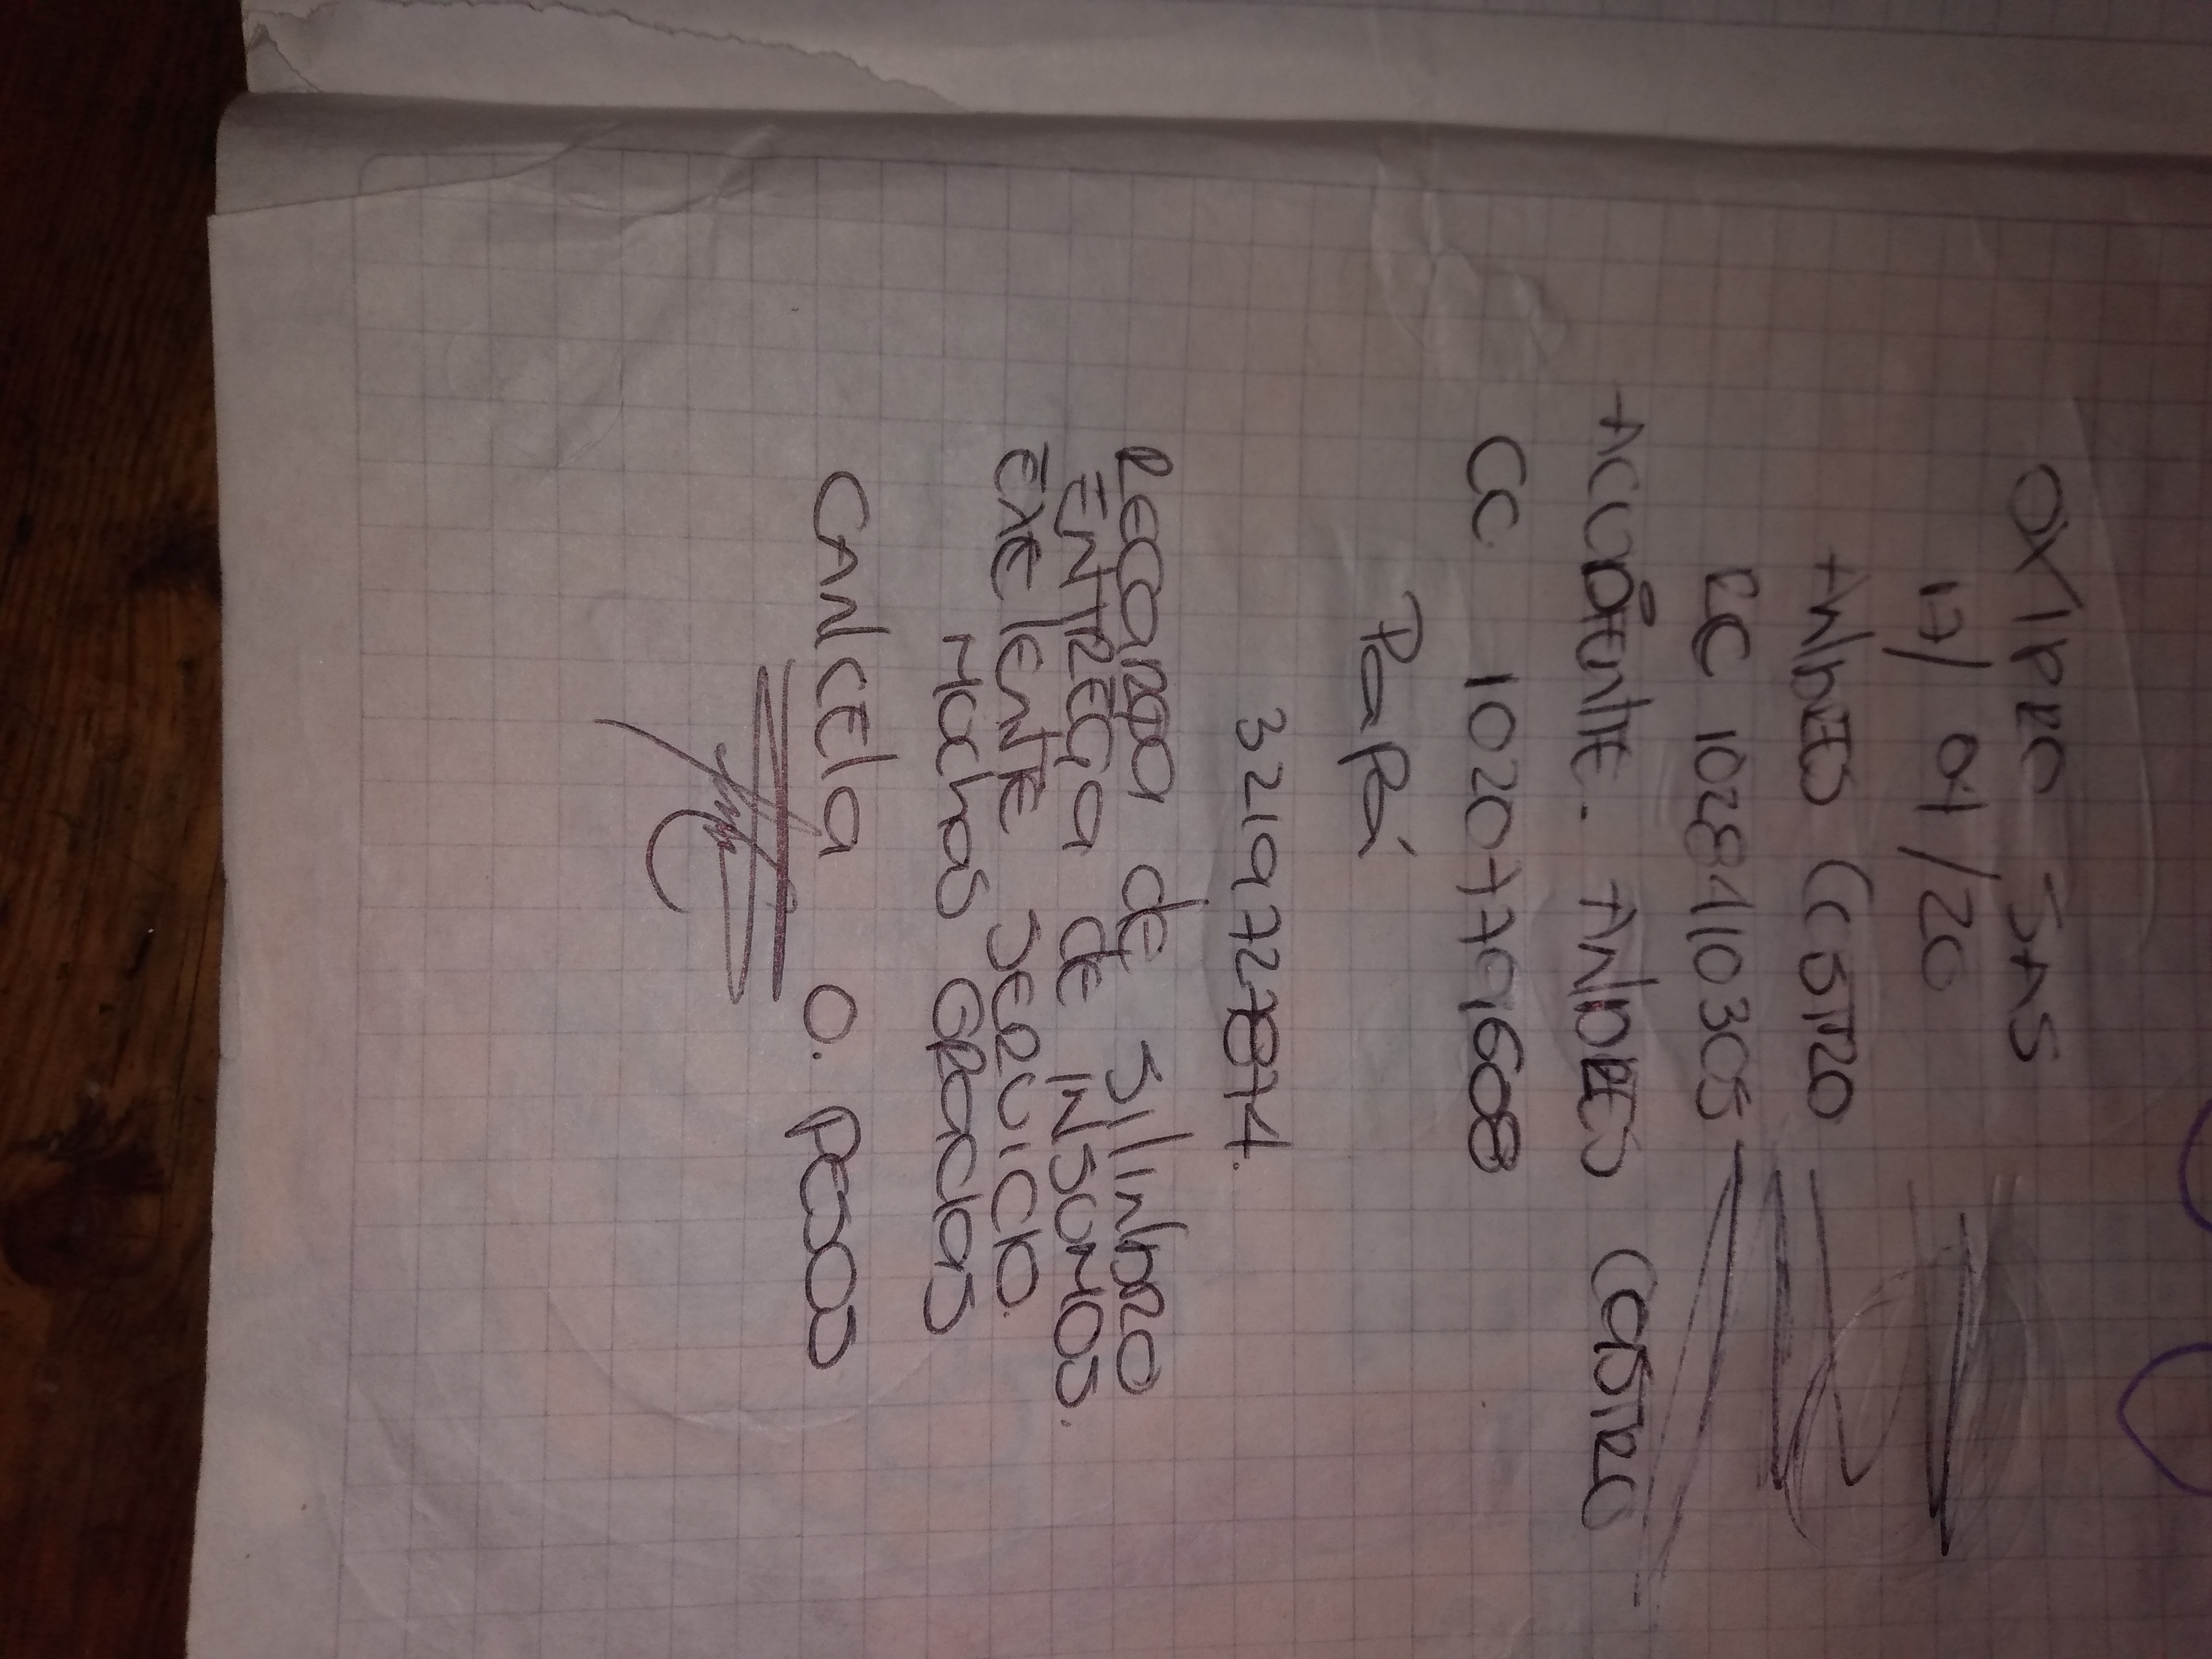 OXIPRO SAS
17/04/20
ANDRES CASTRO
RC 1028411030S
ACUDIENTE. ANDRES CASTRO
CC 10207791608
PaPá
3219727874.
Recarga de SIlINDRO
ENTREGA de INSUMOS.
EXElENTE SERVICIO.
Muchas GRacias
CANCEla 0. Pesos